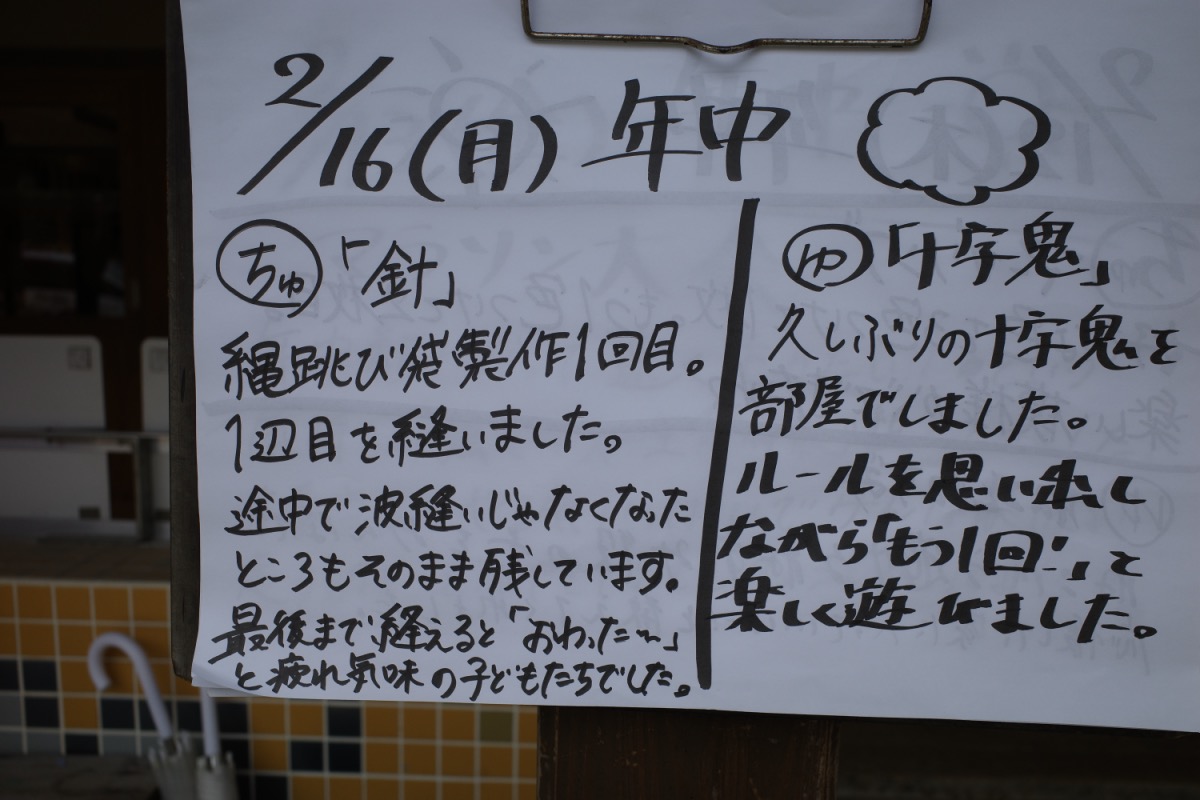 2/16(月) 年中
ちゅ「針」
縄跳び袋製作1回目。
1辺目を縫いました。
途中で波縫いじゃなくなった
ところもそのまま残しています。
最後まで縫えると「おわった〜」
と疲れ気味の子どもたちでした。
ゆ「十字鬼」
久しぶりの十字鬼を
部屋でしました。
ルールを思い出し
ながら「もう1回!」と
楽しく遊びました。